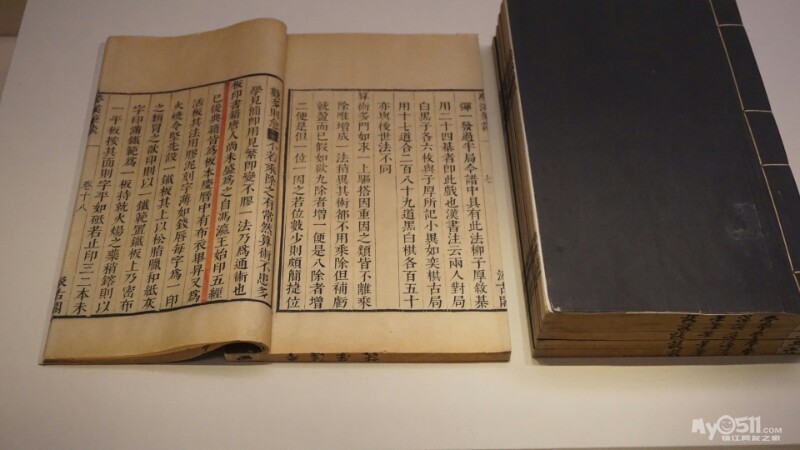 彈一發過半局今譜中具有此法柳子厚敘棊
用二十四棊者即此戲也漢書注云兩人對局
白黑子各六枚與子厚所記小異如奕棋古局
用十七道合二百八十九道黑白棋各百五十
亦與後世法不同
算術多門如求一上驅搭因重因之類皆不離乘
除唯增成一法稍異其術都不用乘除但補虧
就盈而已假如欲九除者增一便是八除者增
二便是但一位一因之若位數少則頗簡捷位
數多則愈繁不若乘除之有常然算術不患多
學見簡即用見繁即變不膠一法乃為通術也
板印書籍唐人尚未盛為之自馮瀛王始印五經
已後典籍皆為板本慶曆中有布衣畢昇又為
活板其法用膠泥刻字薄如錢唇每字為一印
火燒令堅先設一鐵板其上以松脂臘和紙灰
之類冒之欲印則以一鐵範置鐵板上乃密布
字印滿鐵範為一板持就火煬之藥稍鎔則以
一平板按其面則字平如砥若止印三二本未
卷十八
汲古閣
My0511.COM
镇江网友之家